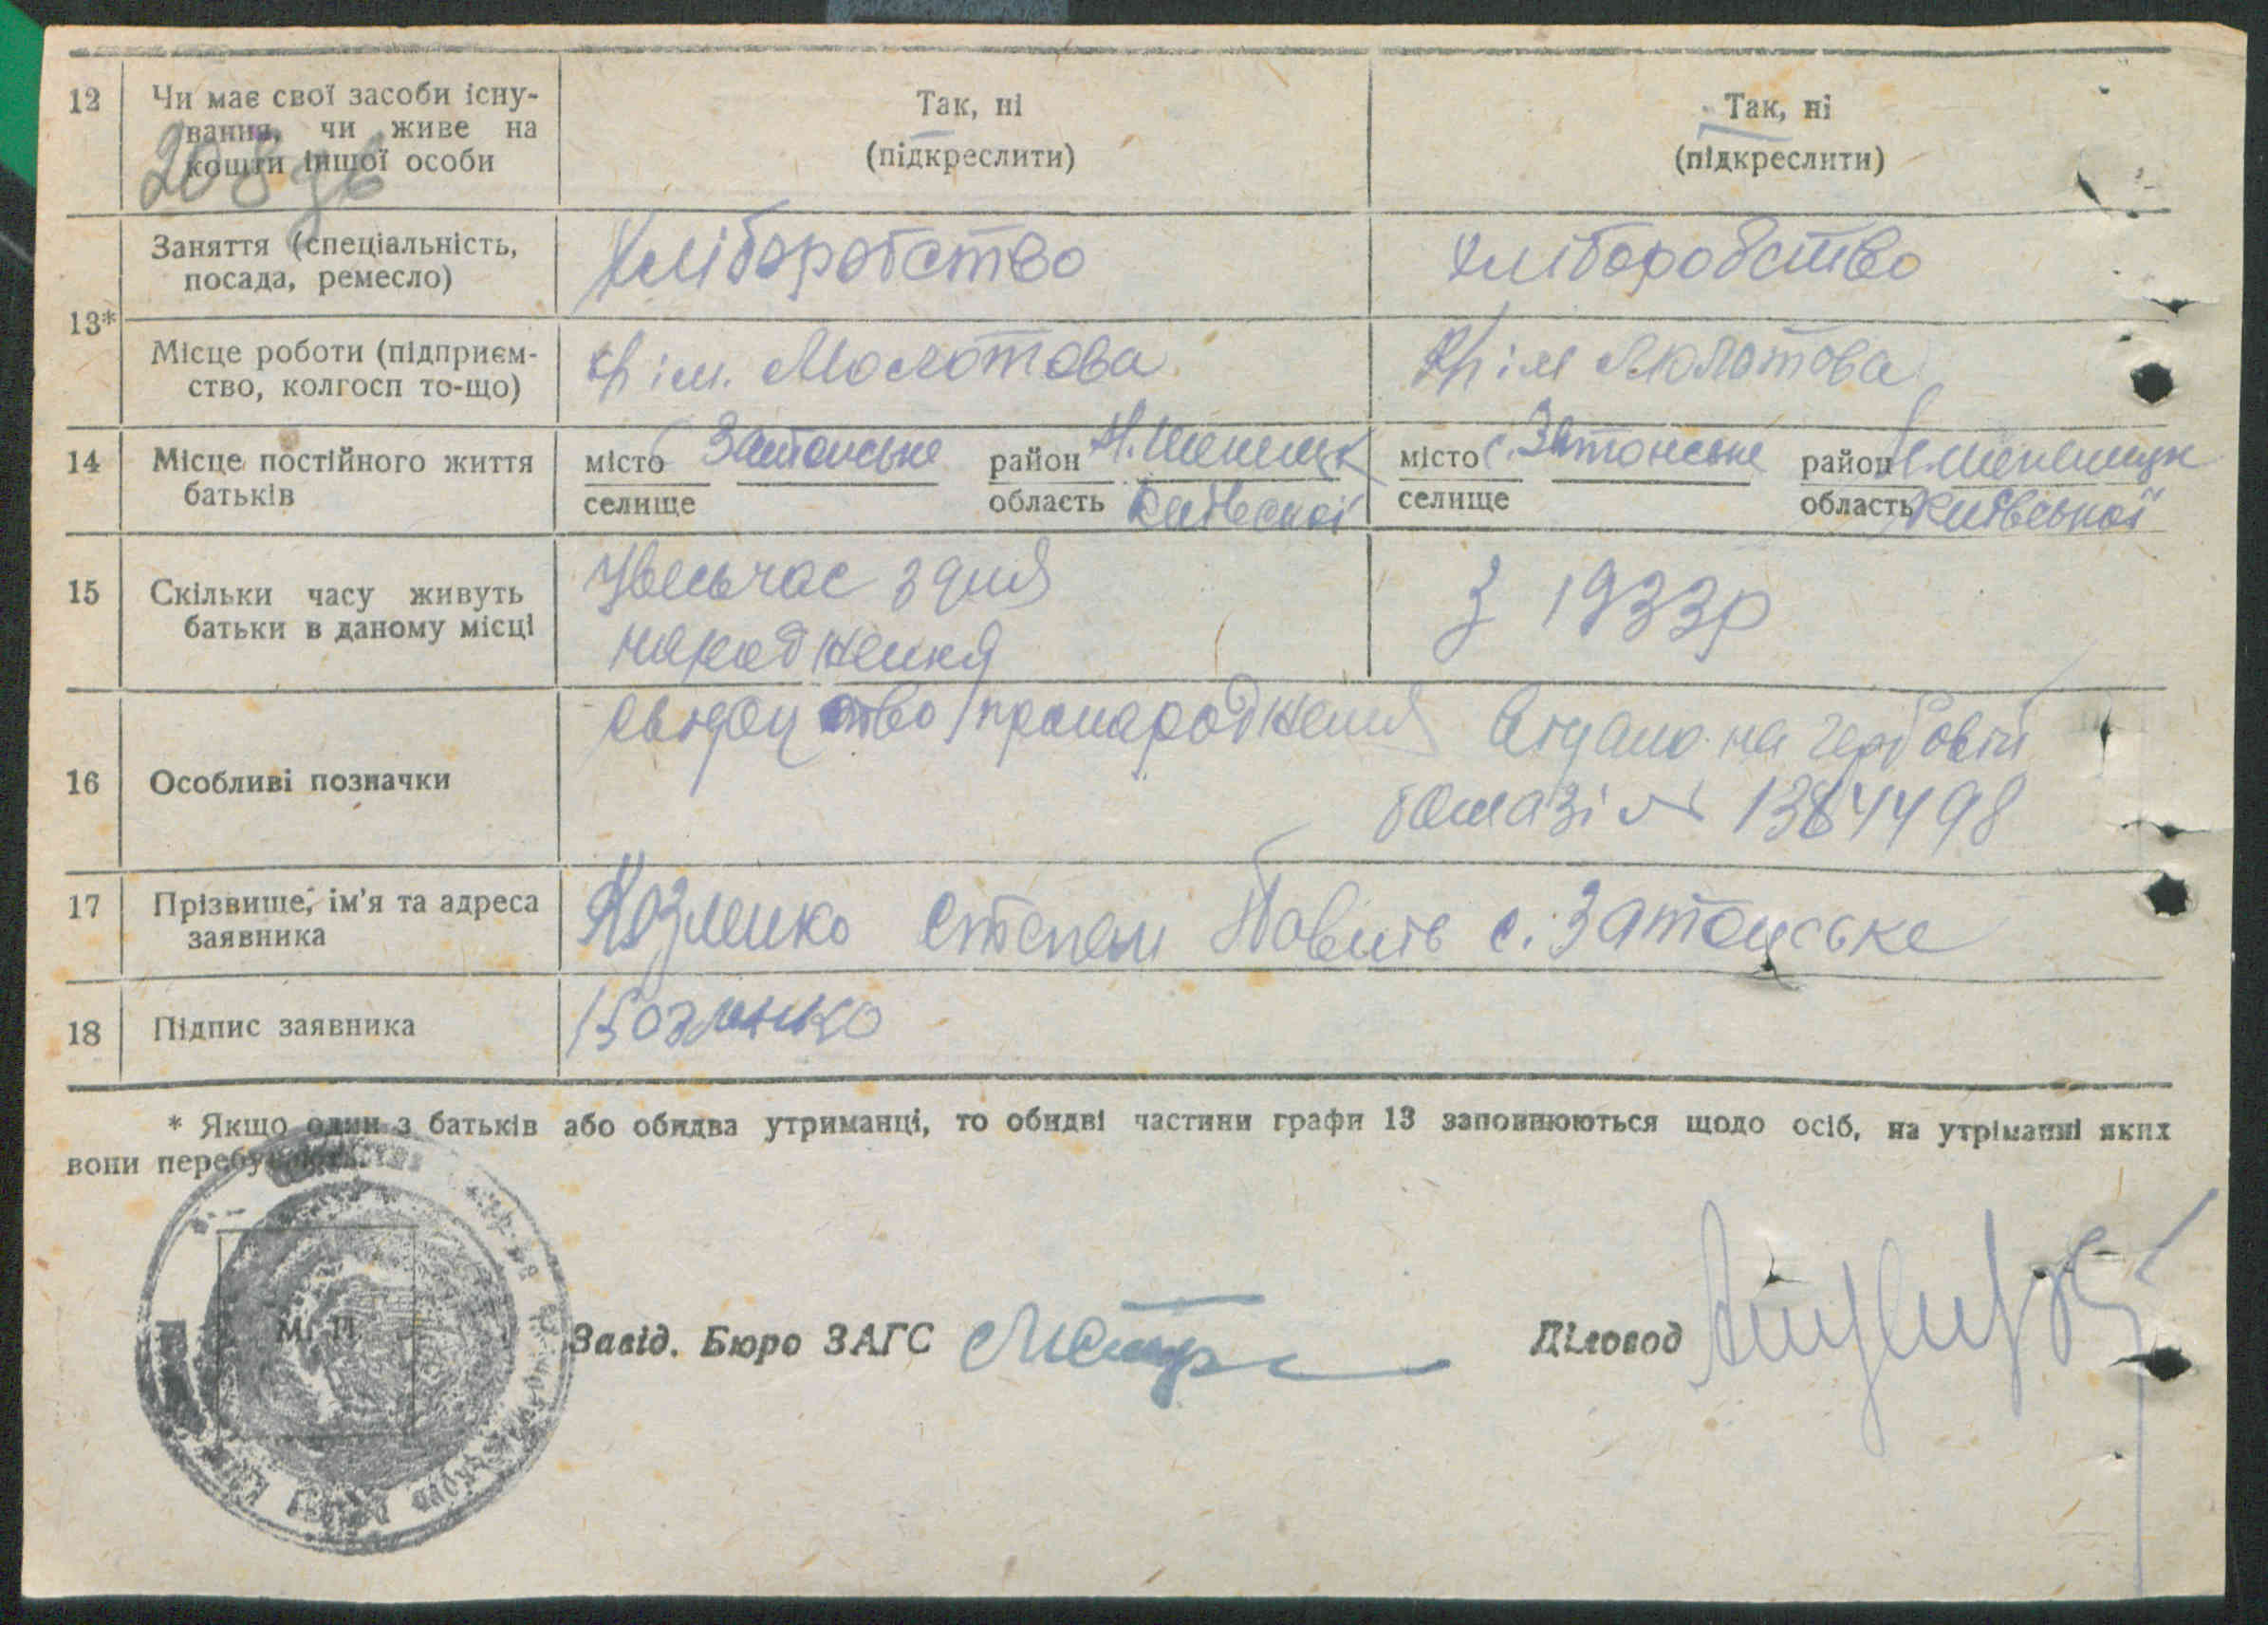 12 Чи має свої засоби існу- Так, ні Так, ні
вання, чи живе на (підкреслити) (підкреслити)
кошти іншої особи
208 зв
Заняття (спеціальність, Хліборобство хліборобство
посада, ремесло)
13*
Місце роботи (підприєм- ім. Молотова ім Молотова
ство, колгосп то-що)
14 Місце постійного життя місто Затонське район місто с. Затонське район
батьків селище область Київської селище область Київської
15 Скільки часу живуть Увесь час з дня З 1933р
батьки в даному місці народження
16 Особливі позначки свідоцтво про народження видано на гербовій
бомазі № 1384498
17 Прізвище, ім'я та адреса Козленко Степан с. Затонське
заявника
18 Підпис заявника Козленко
* Якщо один з батьків або обидва утриманці, то обидві частини графи 13 заповнюються щодо осіб, на утріманні яких
вони перебувають.
М. П.
Завід. Бюро ЗАГС Діловод